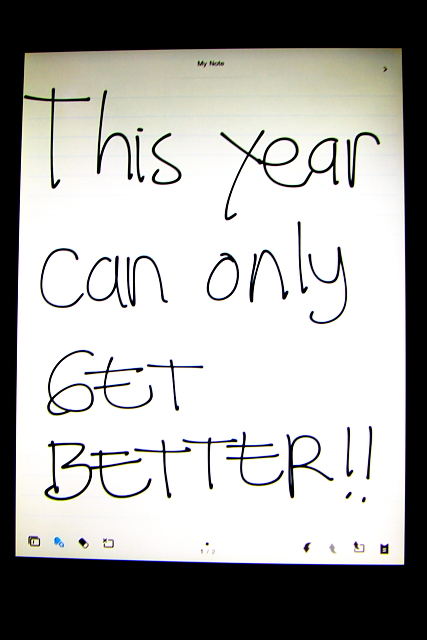 My Note
This year
can only
GET
BETTER!!
1/2